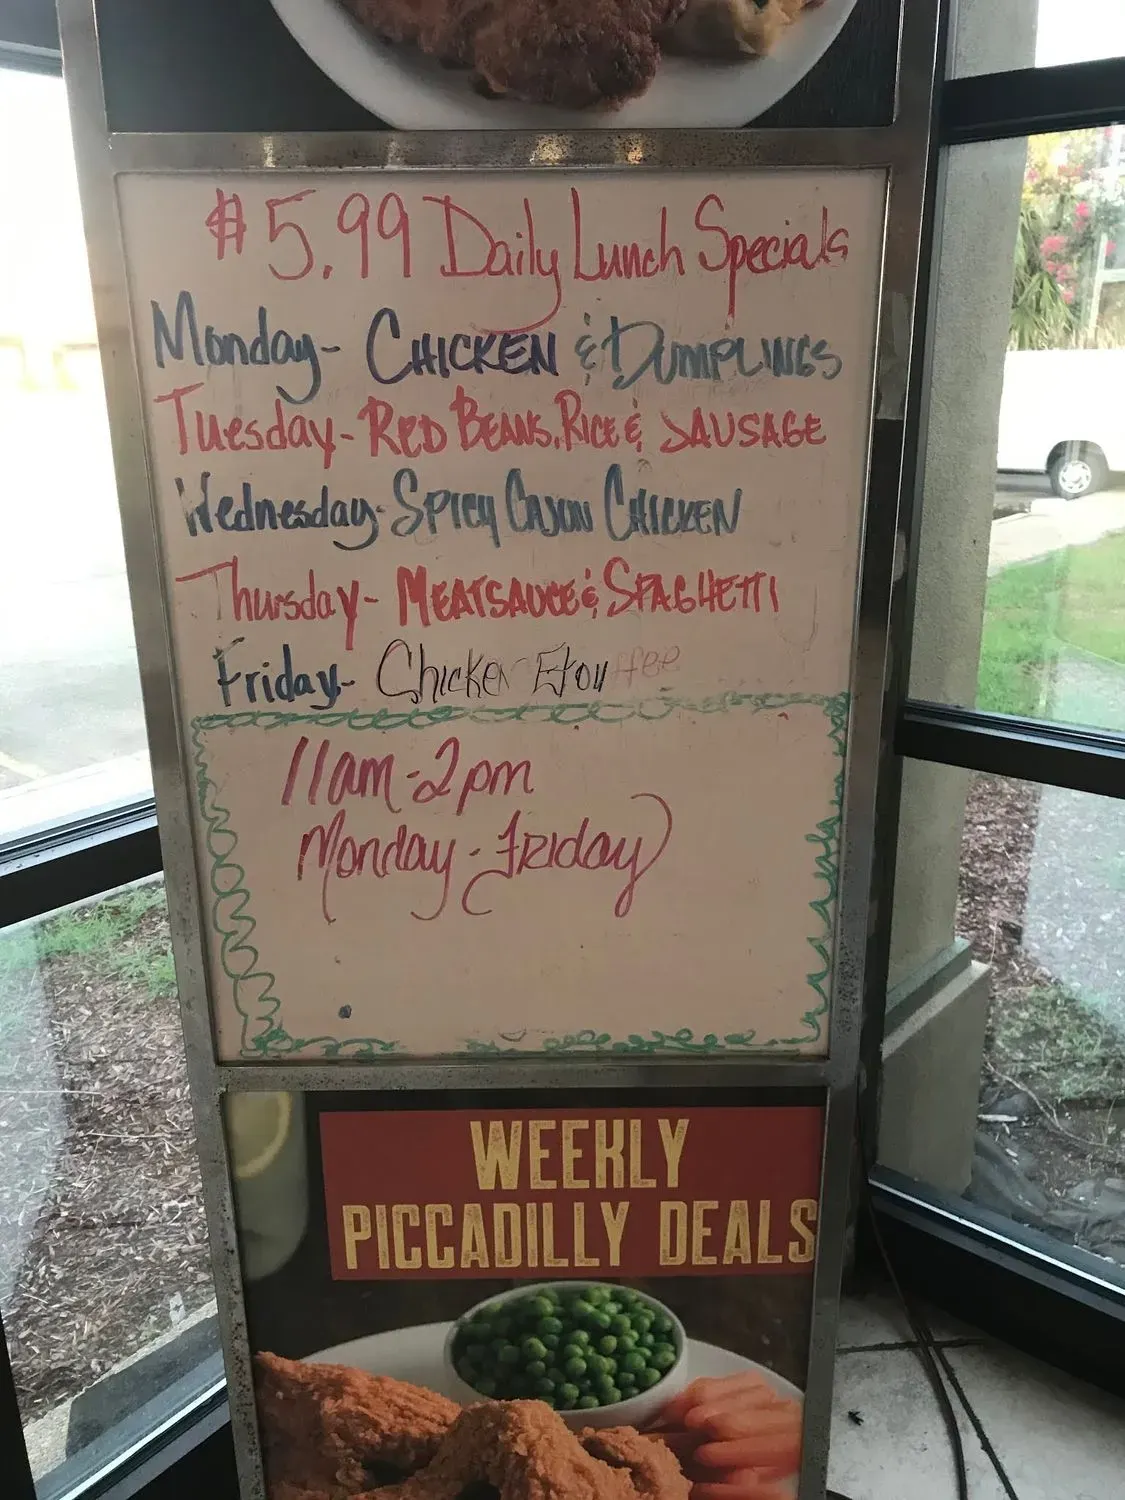 $5.99 Daily Lunch Specials
Monday- CHICKEN & DUMPLINGS
Tuesday- RED BEANS, RICE & SAUSAGE
Wednesday- SPICY CAJUN CHICKEN
Thursday- MEATSAUCE & SPAGHETTI
Friday- Chicken Etouffee
11am-2pm
Monday-Friday
WEEKLY
PICCADILLY DEALS